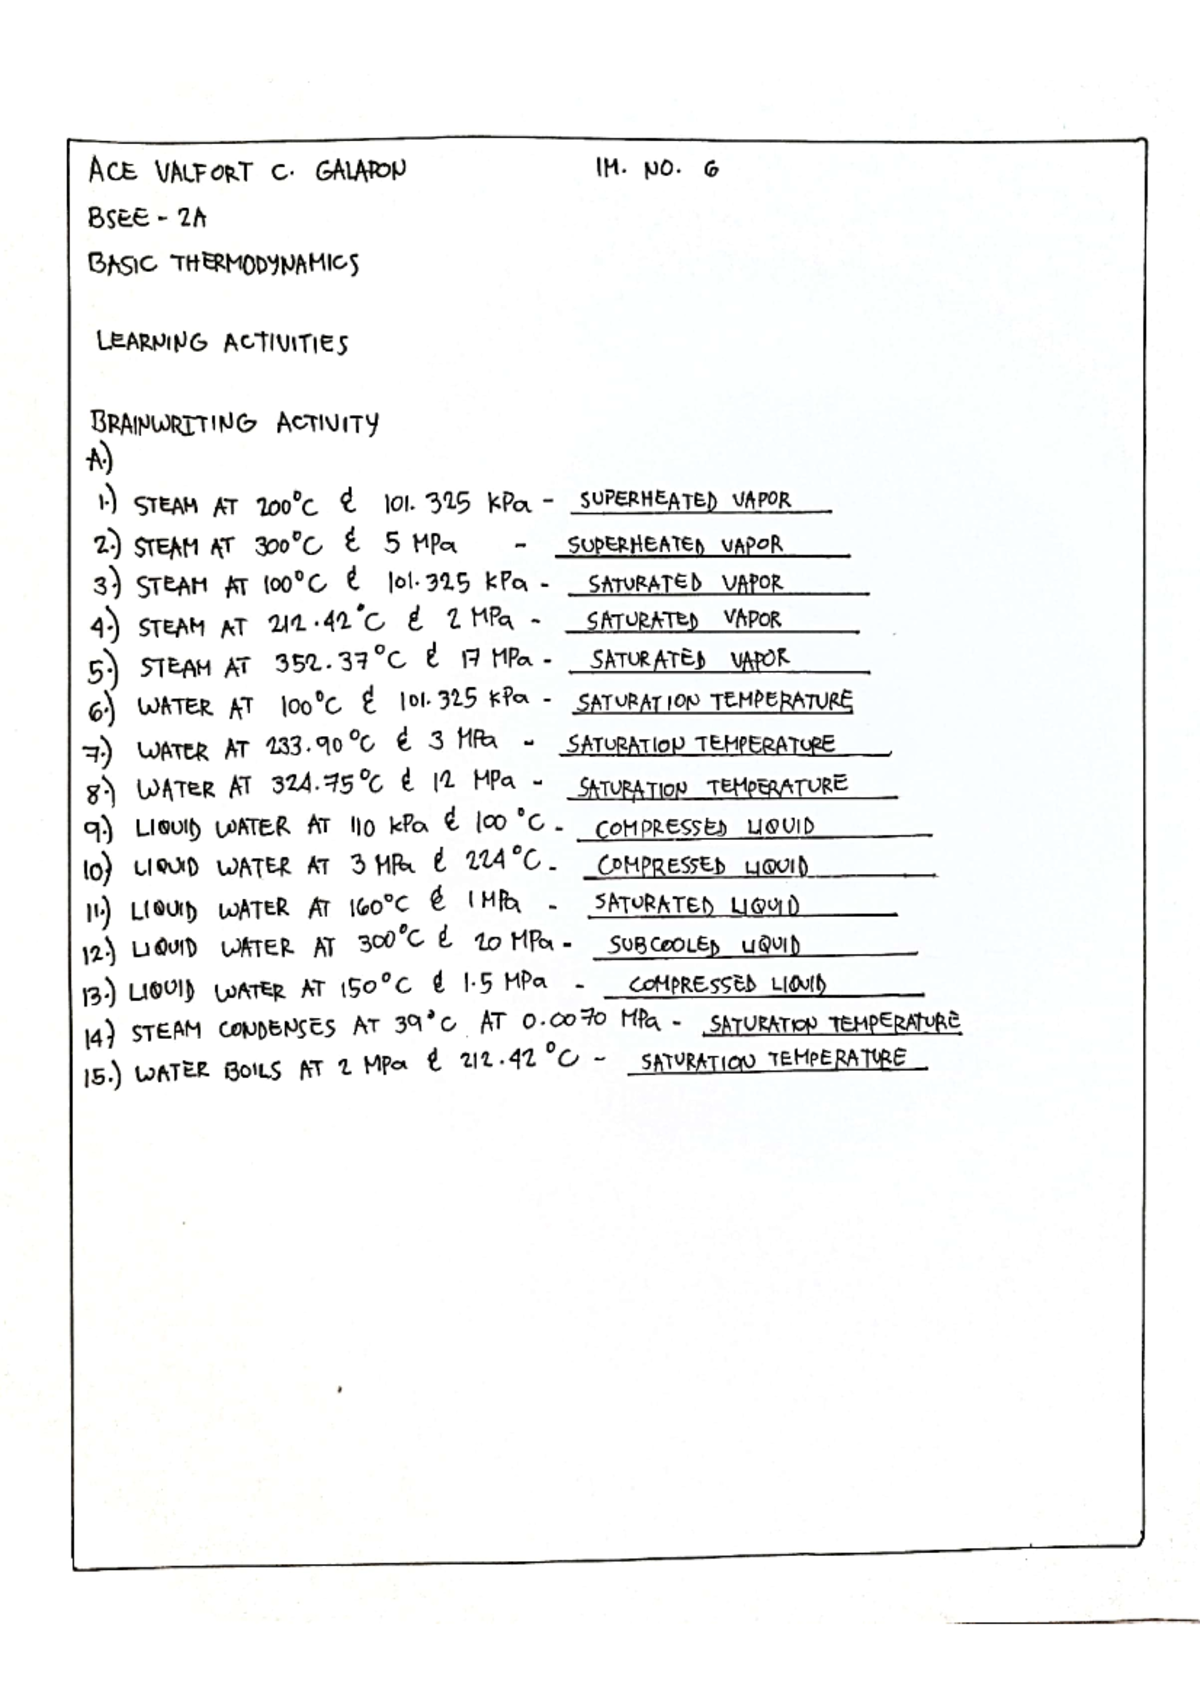 ACE VALFORT C. GALAPON IM. NO. 6
BSEE - 2A
BASIC THERMODYNAMICS
LEARNING ACTIVITIES
BRAINWRITING ACTIVITY
A.)
1.) STEAM AT 200°C & 101.325 kPa - SUPERHEATED VAPOR
2.) STEAM AT 300°C & 5 MPa - SUPERHEATED VAPOR
3.) STEAM AT 100°C & 101.325 kPa - SATURATED VAPOR
4.) STEAM AT 212.42°C & 2 MPa - SATURATED VAPOR
5.) STEAM AT 352.37°C & 17 MPa - SATURATED VAPOR
6.) WATER AT 100°C & 101.325 kPa - SATURATION TEMPERATURE
7.) WATER AT 233.90°C & 3 MPa - SATURATION TEMPERATURE
8.) WATER AT 324.75°C & 12 MPa - SATURATION TEMPERATURE
9.) LIQUID WATER AT 110 kPa & 100°C - COMPRESSED LIQUID
10) LIQUID WATER AT 3 MPa & 224°C - COMPRESSED LIQUID
11.) LIQUID WATER AT 160°C & 1 MPa - SATURATED LIQUID
12.) LIQUID WATER AT 300°C & 20 MPa - SUBCOOLED LIQUID
13.) LIQUID WATER AT 150°C & 1.5 MPa - COMPRESSED LIQUID
14) STEAM CONDENSES AT 39°C AT 0.0070 MPa - SATURATION TEMPERATURE
15.) WATER BOILS AT 2 MPa & 212.42°C - SATURATION TEMPERATURE